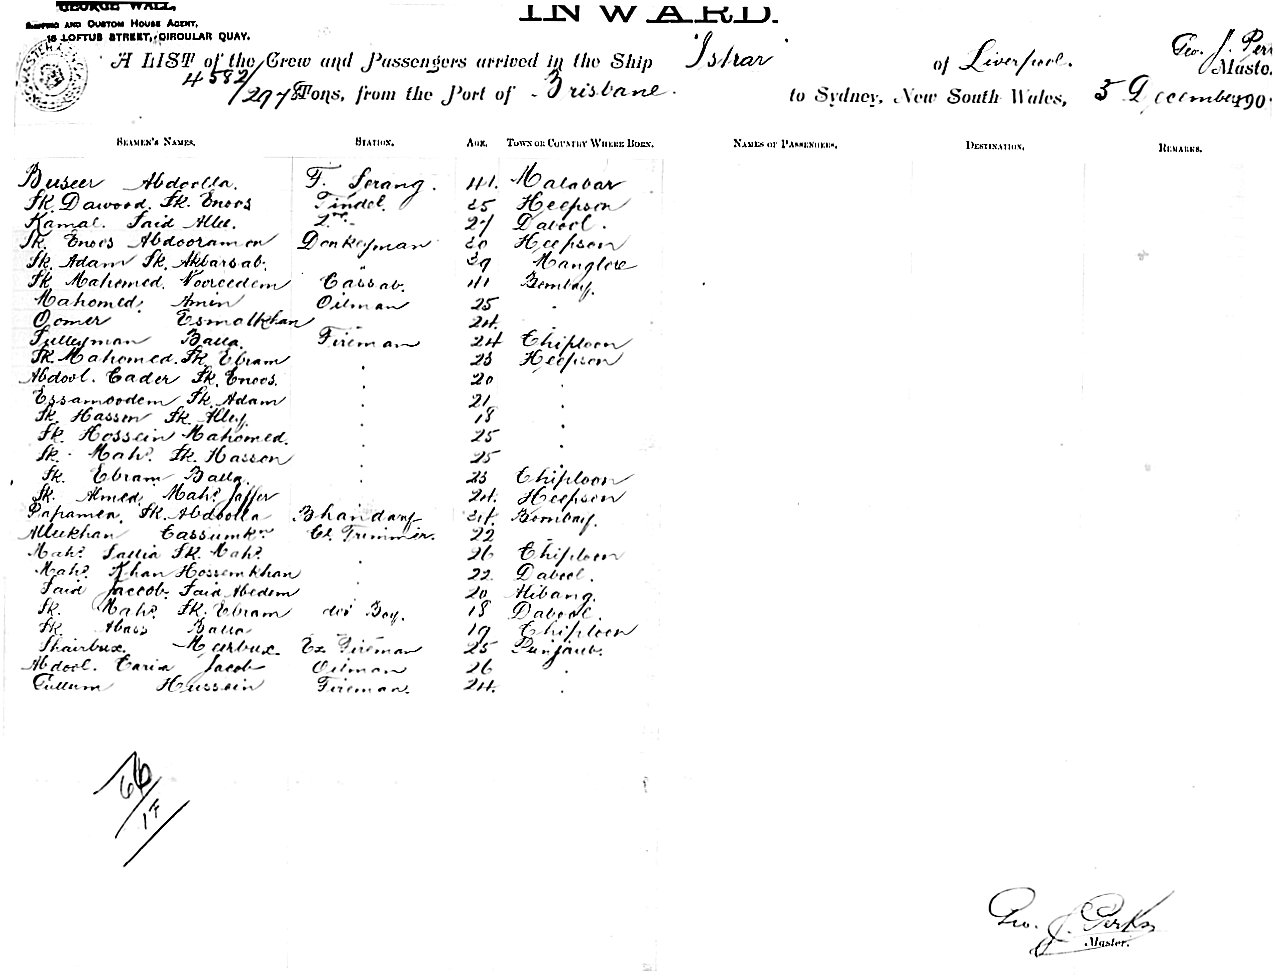 GEORGE WALL,
SHIPPING AND CUSTOM HOUSE AGENT,
15 LOFTUS STREET, CIRCULAR QUAY.
INWARD.
A LIST of the Crew and Passengers arrived in the Ship "Istrar" of Liverpool. Geo. J. Per
Master
4582/2975 Tons, from the Port of Brisbane. to Sydney, New South Wales, 5 December 190
SEAMEN'S NAMES. STATION. AGE. TOWN OR COUNTRY WHERE BORN. NAMES OF PASSENGERS. DESTINATION. REMARKS.
Buseer Abdoolla. F. Serang. 41. Malabar
Sk. Dawood. Sk. Enoos Tindel. 25 Heepson
Kamal. Said Allee. 27 Dabool.
Sk. Enoos Abdooramon Donkeyman 30 Heepson
Sk. Adam Sk. Akbarsab. " 39 Manglore
Sk. Mahomed. Nooreedem Cassab. 41 Bombay.
Mahomed. Amin Oilman 25 "
Oomer Esmalkhan 24.
Sulleyman Balla. Fireman 24 Chiploon
Sk. Mahomed. Sk. Ebram " 23 Heepson
Abdool. Cader Sk. Enoos. " 20 "
Essamoodem Sk. Adam " 21 "
Sk. Hassen Sk. Alley. " 18 "
Sk. Hossein Mahomed. " 25 "
Sk. Mahd. Sk. Hassen " 25 "
Sk. Ebram Balla. " 23 Chiploon
Sk. Ahmed. Mahd. Jaffer " 24. Heepson
Papamea. Sk. Abdoolla Bhandary 34. Bombay.
Alleekhan Cassumkn Cl. Trimmer. 22 "
Mahd. Sallia Sk. Mahd. " 26 Chiploon
Mahd. Khan Hossemkhan " 22. Dabool.
Said Jaccob. Said Abedem " 20 Hibang.
Sk. Mahd. Sk. Ebram do Boy. 18 Dabool.
Sk. Abass Balla " 19 Chiploon
Shairbux. Meerbux. Ex Fireman 25 Punjaub.
Abdool. Caria Jacob Oilman 26 "
Gullum Hussein Fireman. 24. "
66/17
Geo. J. Perks
Master.